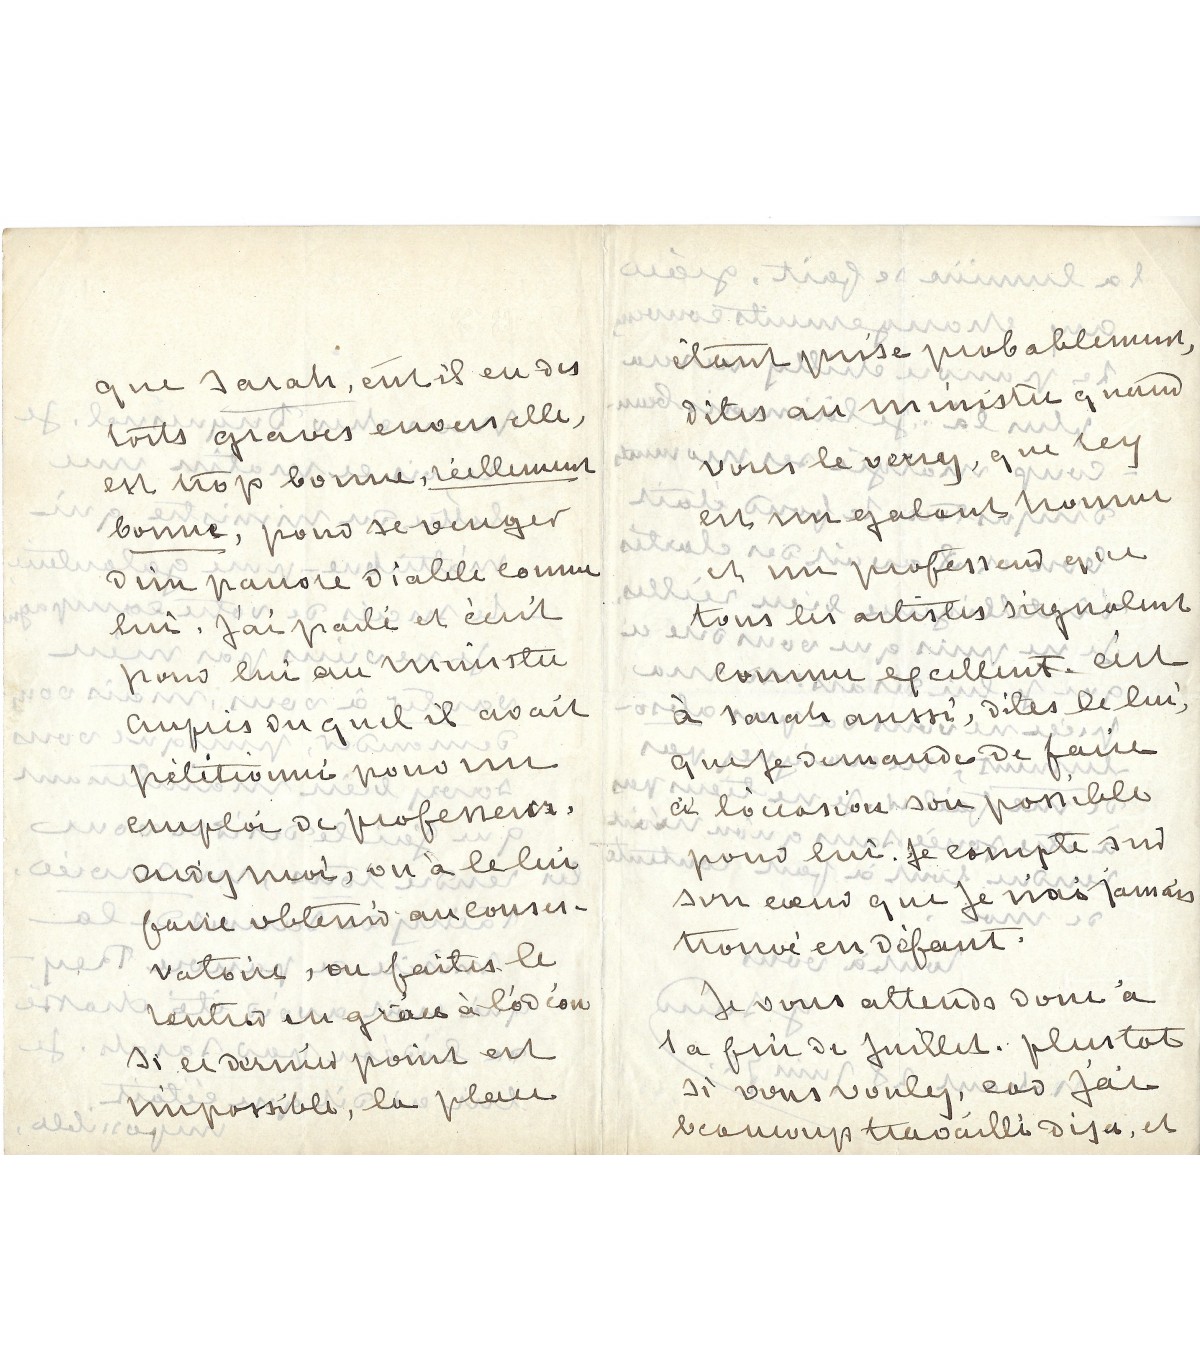 que Sarah, eut il eu des
torts graves envers elle,
est trop bonne, réellement
bonne, pour se venger
d'un pauvre diable comme
lui. J'ai parlé et écrit
pour lui au ministre
auprès du quel il avait
pétitionné pour un
emploi de professeur.
aidez moi, ou à le lui
faire obtenir au conser-
vatoire, ou faites le
rentrer en grâce à l'odéon
si ce dernier point est
impossible, la place
étant prise probablement,
dites au ministre quand
vous le verrez, que Rey
est un galant homme
et un professeur que
tous les artistes signalent
comme excellent. C'est
à Sarah aussi, dites le lui,
que je demande de faire
à l'occasion son possible
pour lui. Je compte sur
son cœur que je n'ai jamais
trouvé en défaut.
Je vous attends donc à
la fin de Juillet. plustot
si vous voulez, car j'ai
beaucoup travaillé déja, et